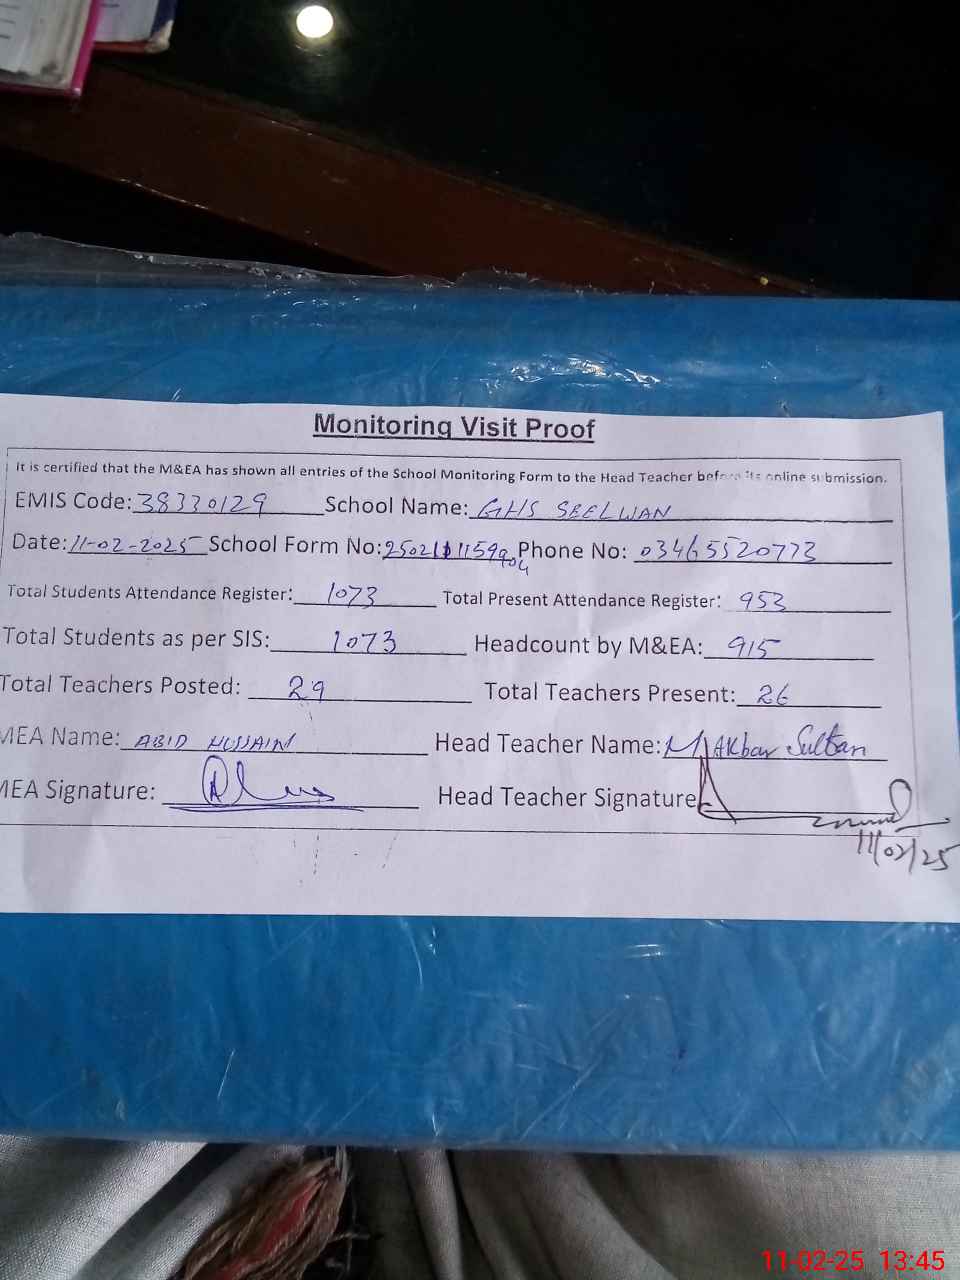 Monitoring Visit Proof
It is certified that the M&EA has shown all entries of the School Monitoring Form to the Head Teacher before its online submission.
EMIS Code: 38330129 School Name: GHS SEELWAN
Date: 11-02-2025 School Form No: Phone No: 03465520773
Total Students Attendance Register: 1073 Total Present Attendance Register: 953
Total Students as per SIS: 1073 Headcount by M&EA: 915
Total Teachers Posted: 29 Total Teachers Present: 26
MEA Name: ABID HUSSAIN Head Teacher Name: M Akbar Sultan
MEA Signature: Head Teacher Signature
11/02/25
11-02-25 13:45